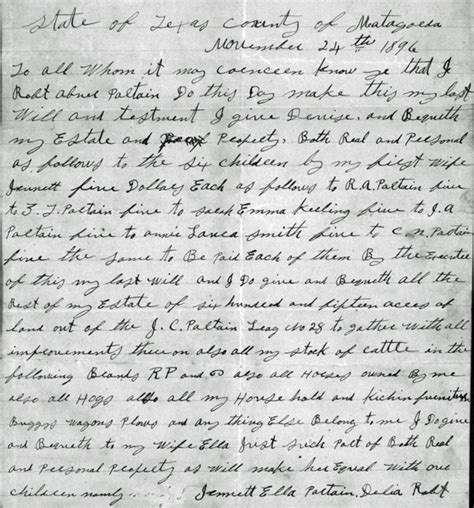 State of Texas County of Matagorda
November 24th 1896
To all Whom it may conceern Know ye that I
Robt abner Partain Do this Day make this my last
Will and testment I give Devise, and Bequeth
my Estate and Propety, Both Real and Personal
as follows to the six children by my first Wife
Jennett five Dollars Each as follows to R.A. Partain five
to Z. T. Partain five to sarah Emma Keeling five to J. A
Partain five to annie Laura smith five to C. N. Partain
five the same to Be Paid Each of them By the Executor
of this my last Will and I Do give and Bequeth all the
Rest of my Estate of six hundred and fifteen acces of
land out of the J. C. Partain Leag No 28 to gather With all
improvements there on also all my stock of cattle in the
following Brands RP and also all Horses owned By me
also all Hogs also all my House hold and Kichin furniture
Buggys Wagons Plows and any thing Else Belong to me I Do give
and Bequeth to my Wife Ella Just such Part of Both Real
and Personal Propety as Will make her Equal With our
children namly Jennett Ella Partain, Delia Robt